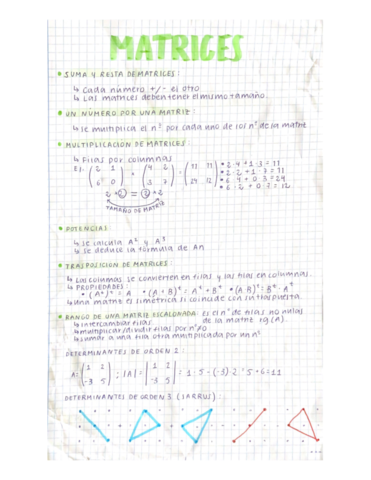 MATRICES
• SUMA Y RESTA DE MATRICES:
↳ Cada número +/- el otro
↳ Las matrices deben tener el mismo tamaño.
• UN NÚMERO POR UNA MATRIZ:
↳ Se multiplica el nº por cada uno de los nº de la matriz
• MULTIPLICACIÓN DE MATRICES
↳ Filas por columnas
EJ: (2 1 / 6 0) • (4 2 / 3 7) = (11 11 / 24 12)
• 2·4+1·3=11
• 2·2+1·7=11
• 6·4+0·3=24
• 6·2+0·7=12
2×2=2×2
TAMAÑO DE MATRIZ
• POTENCIAS
↳ Se calcula A² y A³
↳ Se deduce la fórmula de An
• TRASPOSICIÓN DE MATRICES:
↳ Las columnas se convierten en filas y las filas en columnas.
↳ PROPIEDADES:
• (Aᵗ)ᵗ = A • (A + B)ᵗ = Aᵗ + Bᵗ • (A·B)ᵗ = Bᵗ · Aᵗ
↳ Una matriz es simétrica si coincide con su traspuesta.
• RANGO DE UNA MATRIZ ESCALONADA: Es el nº de filas no nulas
↳ Intercambiar filas. de la matriz rg(A).
↳ multiplicar/dividir filas por nº≠0
↳ sumar a una fila otra multiplicada por un nº
DETERMINANTES DE ORDEN 2:
A: (1 2 / -3 5) ; |A| = |1 2 / -3 5| = 1·5 - (-3)·2 = 5+6=11
DETERMINANTES DE ORDEN 3 (SARRUS):